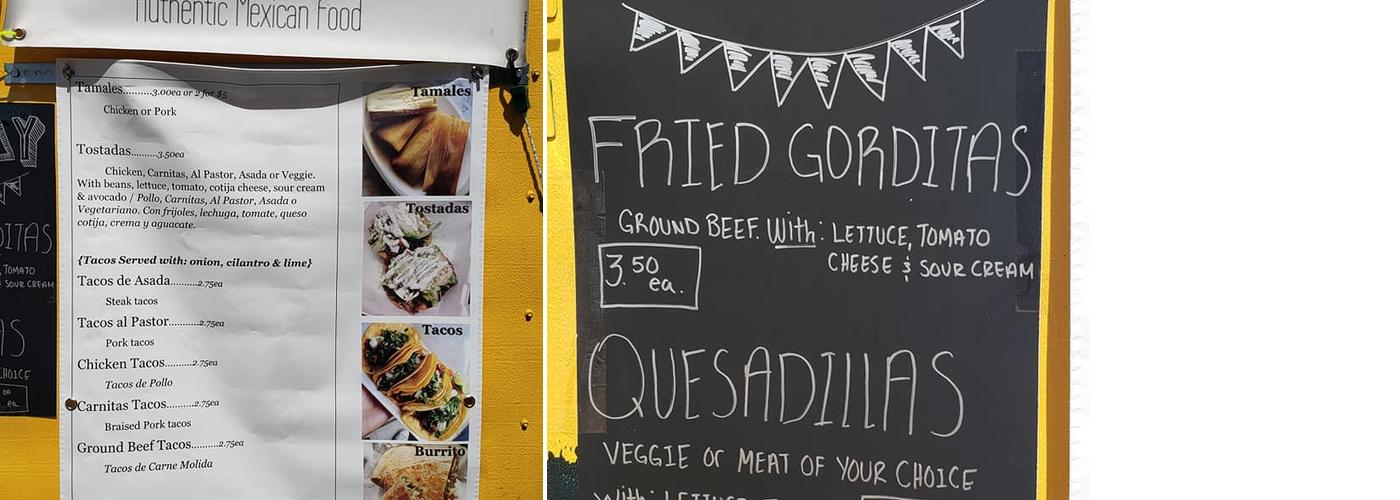 Authentic Mexican Food
Tamales..........3.00ea or 2 for $5
Chicken or Pork
Tostadas.........3.50ea
Chicken, Carnitas, Al Pastor, Asada or Veggie.
With beans, lettuce, tomato, cotija cheese, sour cream
& avocado / Pollo, Carnitas, Al Pastor, Asada o
Vegetariano. Con frijoles, lechuga, tomate, queso
cotija, crema y aguacate.
{Tacos Served with: onion, cilantro & lime}
Tacos de Asada.........2.75ea
Steak tacos
Tacos al Pastor..........2.75ea
Pork tacos
Chicken Tacos.........2.75ea
Tacos de Pollo
Carnitas Tacos.........2.75ea
Braised Pork tacos
Ground Beef Tacos.........2.75ea
Tacos de Carne Molida
Tamales
Tostadas
Tacos
Burrito
FRIED GORDITAS
GROUND BEEF. With: LETTUCE, TOMATO
CHEESE & SOUR CREAM
3.50 ea.
QUESADILLAS
VEGGIE or MEAT OF YOUR CHOICE
With: LETTUCE